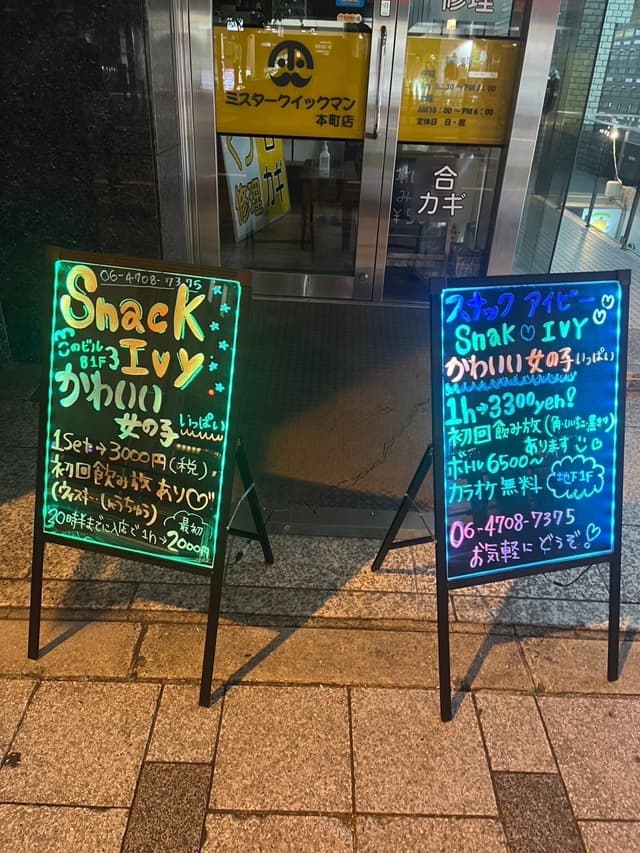 修理
ミスタークイックマン
本町店
AM10:00～PM6:00
定休日 日・祝
修理
カギ
合
カギ
06-4708-7375
Snack
Ivy
このビル
B1F
かわいい
女の子
いっぱい
1Set→3000円(税)
初回飲み放あり♡
(ウイスキー しょうちゅう)
20時半までに入店で1h→2000円
最初
スナック アイビー
Snak ♡ IVY
かわいい女の子いっぱい
1h→3300yen!
初回飲み放(角・いいちこ・黒きり)
あります
ボトル6500〜
カラオケ無料
地下1F
06-4708-7375
お気軽にどうぞ!